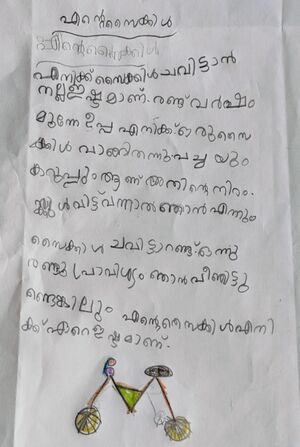 എന്റെ സൈക്കിൾ
എന്റെ സൈക്കിൾ
എനിക്ക് സൈക്കിൾ ചവിട്ടാൻ
നല്ല ഇഷ്ടമാണ്. രണ്ട് വർഷം
മുന്നേ ഉപ്പ എനിക്ക് ഒരു സൈ
ക്കിൾ വാങ്ങി തന്നു. പച്ച യും
കറുപ്പും ആണ് അതിന്റെ നിറം.
സ്കൂൾ വിട്ട് വന്നാൽ ഞാൻ എന്നും
സൈക്കിൾ ചവിട്ടാറുണ്ട്. ഒന്നു
രണ്ടു പ്രാവിശ്യം ഞാൻ വീണിട്ടു
ണ്ടെങ്കിലും എന്റെ സൈക്കിൾ എനി
ക്ക് ഏറെ ഇഷ്ടമാണ്.